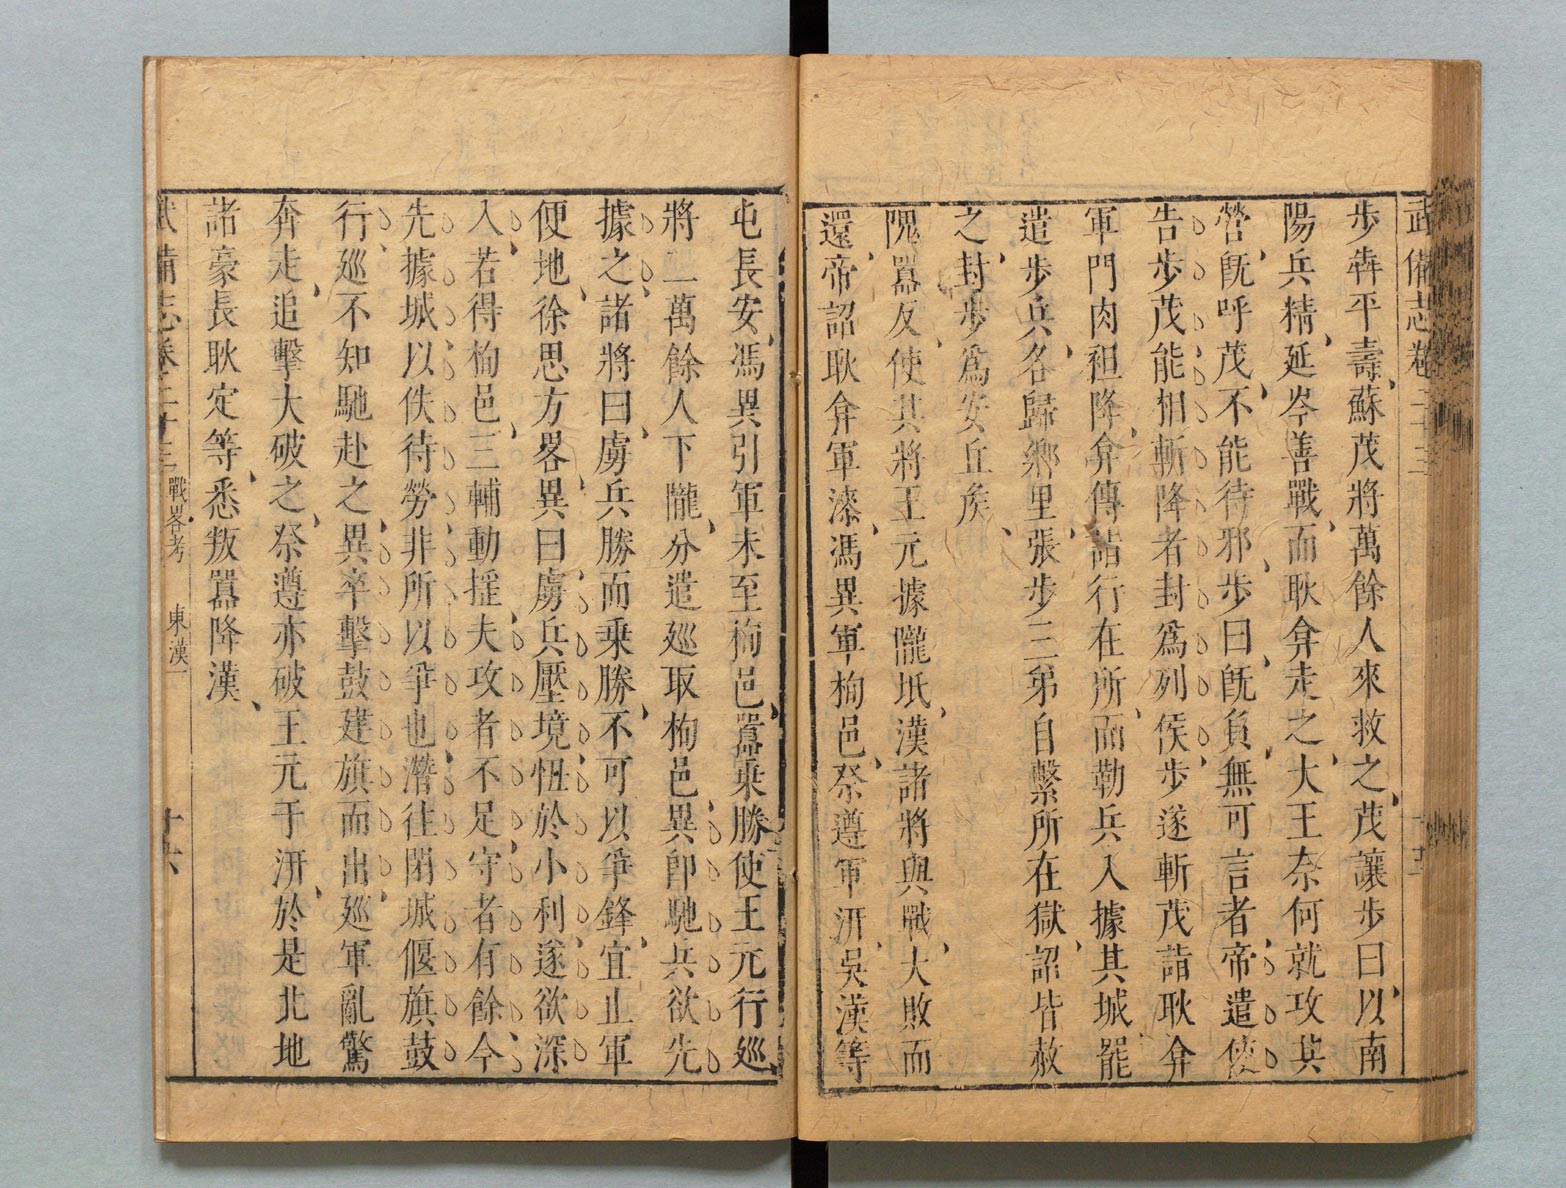 武備志卷二十三
步奔平壽蘇茂將萬餘人來救之茂讓步曰以南
陽兵精延岑善戰而耿弇走之大王奈何就攻其
營旣呼茂不能待邪步曰旣負無可言者帝遣使
告步茂能相斬降者封爲列侯步遂斬茂詣耿弇
軍門肉袒降弇傳詣行在所而勒兵入據其城罷
遣步兵各歸鄉里張步三弟自繫所在獄詔皆赦
之封步爲安丘矦
隗囂反使其將王元據隴坻漢諸將與戰大敗而
還帝詔耿弇軍漆馮異軍栒邑祭遵軍汧吳漢等
屯長安馮異引軍未至栒邑囂乗勝使王元行廵
將二萬餘人下隴分遣廵取栒邑異卽馳兵欲先
據之諸將曰虜兵勝而乗勝不可以爭鋒宜止軍
便地徐思方畧異曰虜兵壓境忸於小利遂欲深
入若得栒邑三輔動揺夫攻者不足守者有餘今
先據城以佚待勞非所以爭也濳往閉城偃旗鼓
行廵不知馳赴之異卒擊鼓建旗而出廵軍亂驚
奔走追擊大破之祭遵亦破王元于汧於是北地
諸豪長耿定等悉叛囂降漢
武備志卷二十三 戰畧考 東漢一 十六